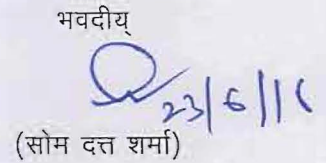 भवदीय्
23/6/16
(सोम दत्त शर्मा)